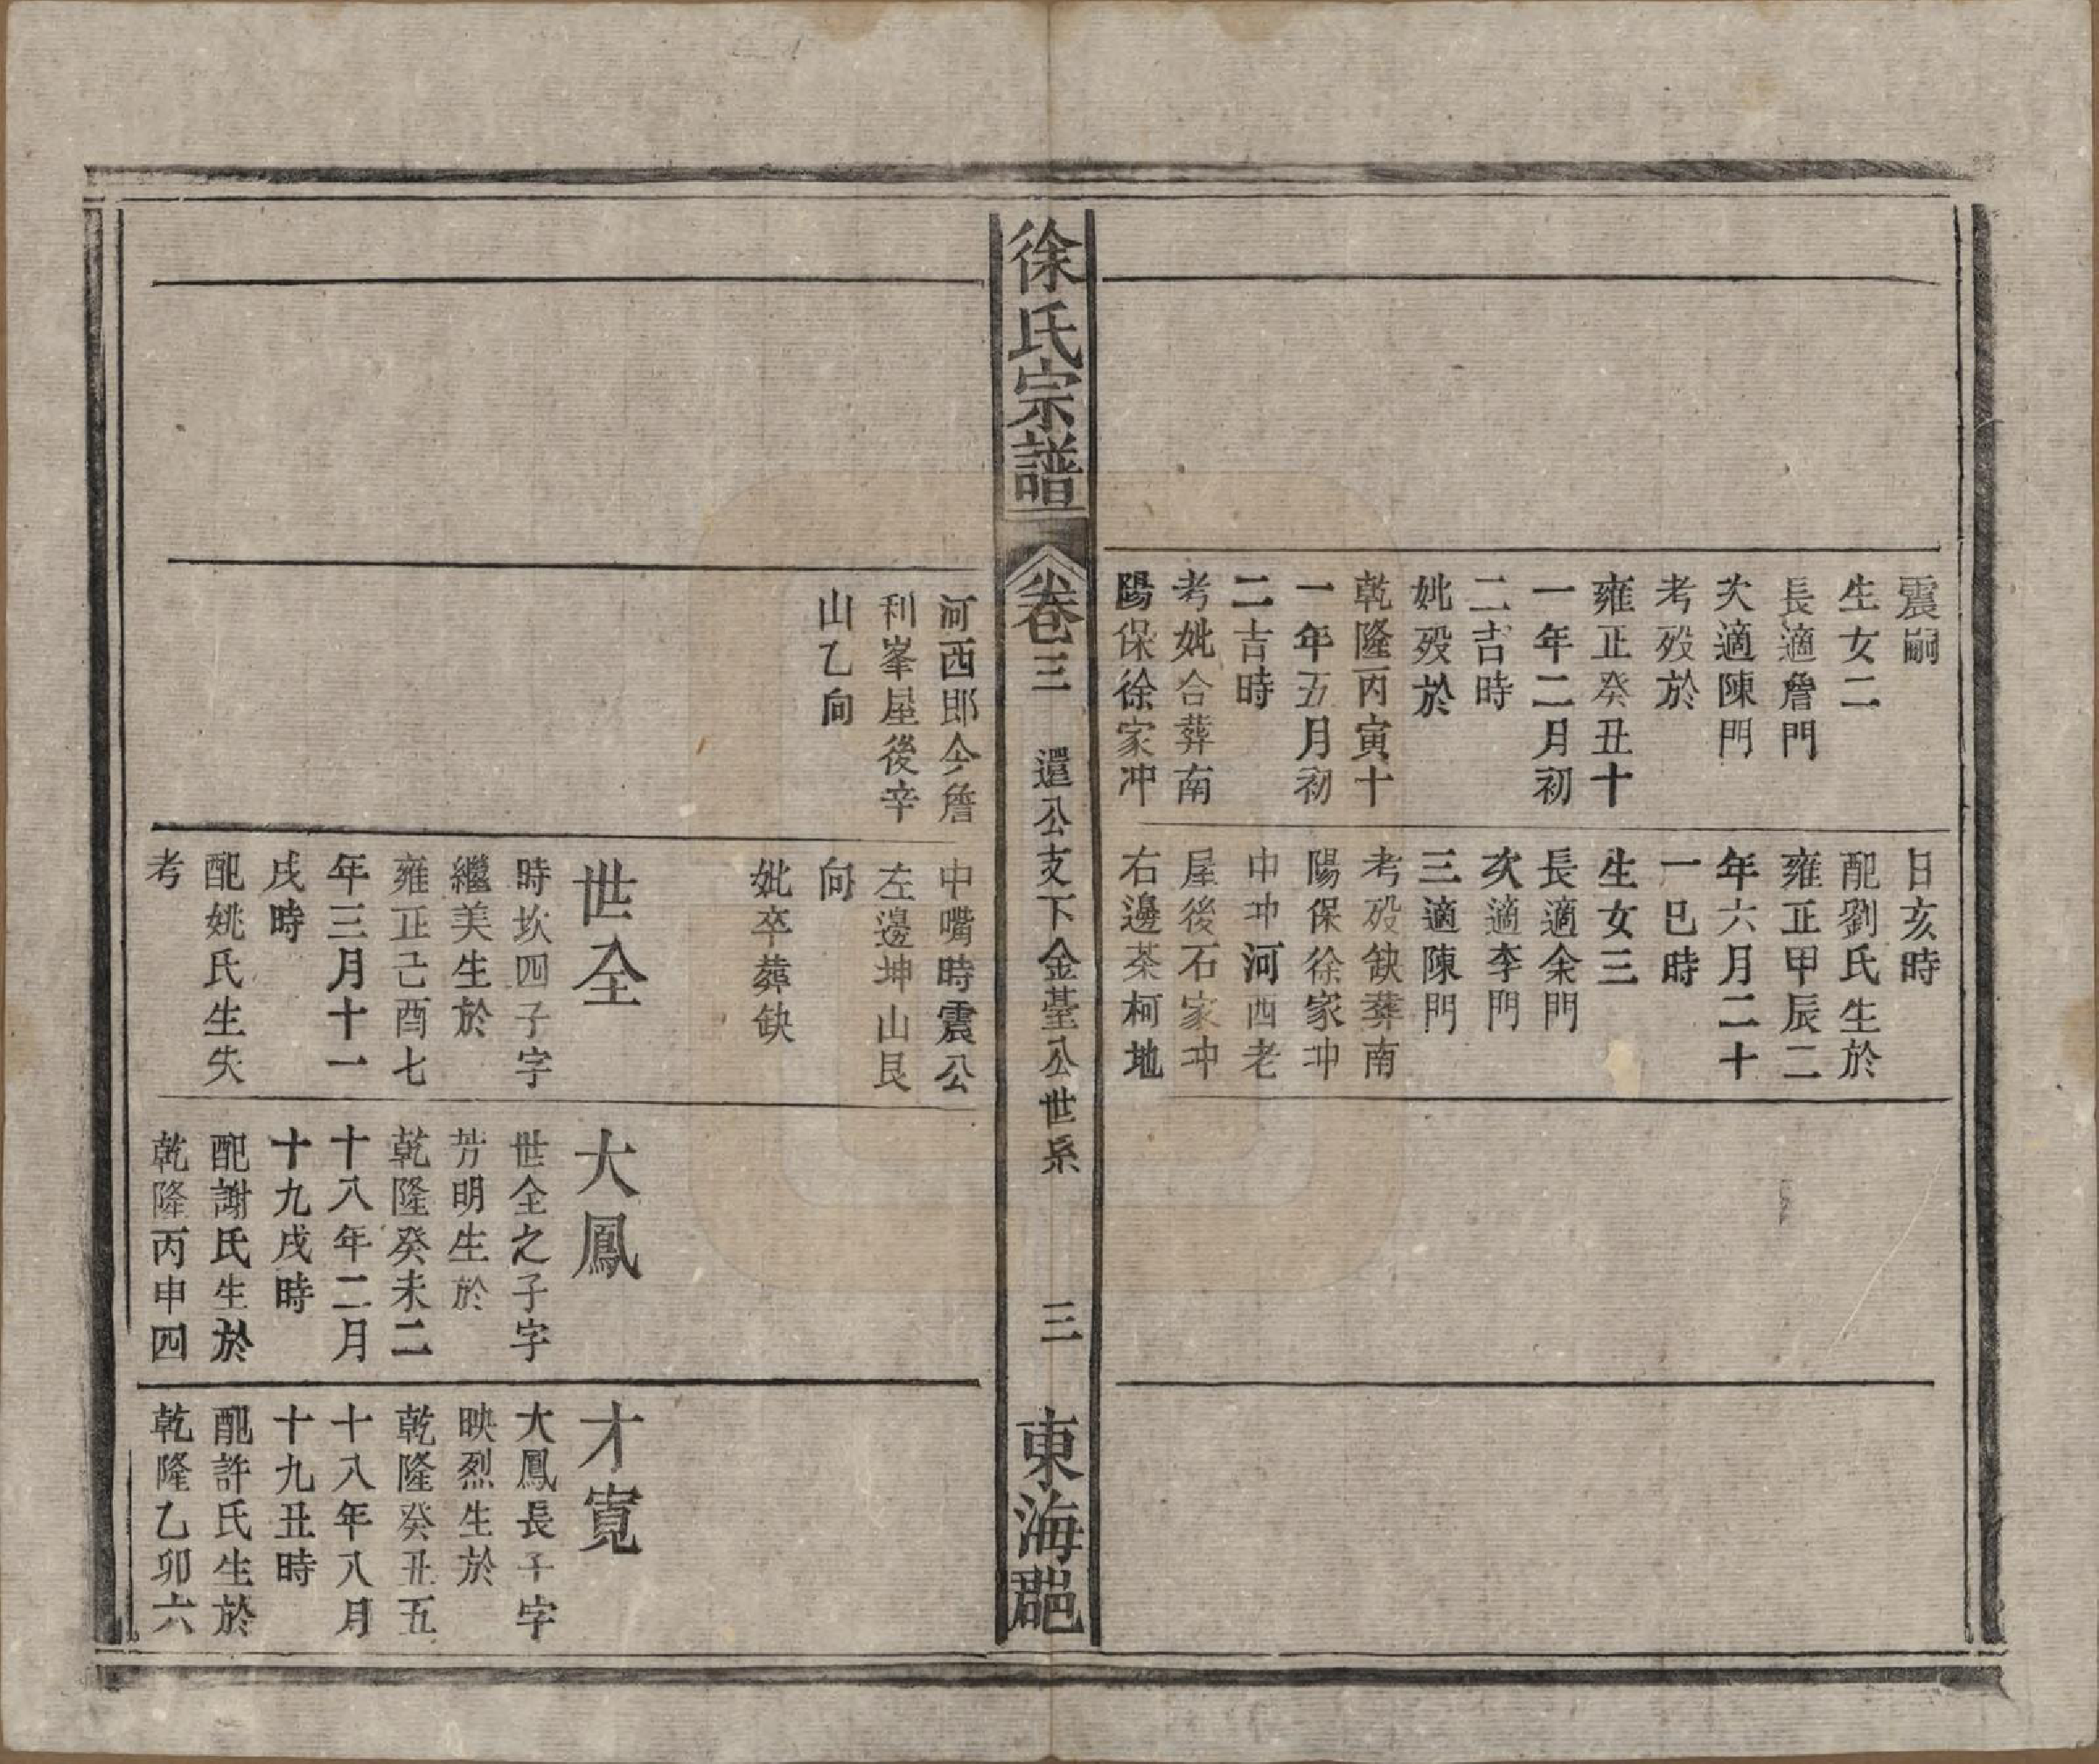 震嗣
生女二
長適詹門
次適陳門
考歿於
雍正癸丑十
一年二月初
二吉時
妣歿於
乾隆丙寅十
一年五月初
二吉時
考妣合葬南
陽保徐家冲
日亥時
配劉氏生於
雍正甲辰二
年六月二十
一巳時
生女三
長適余門
次適李門
三適陳門
考歿缺葬南
陽保徐家冲
中冲河西老
屋後石家冲
右邊茶柯地
徐氏宗譜
卷三
還公支下金臺公世系
三
東海郡
河西郎今詹
利峯屋後辛
山乙向
中嘴時震公
左邊坤山艮
向
妣卒葬缺
世全
時坎四子字
繼美生於
雍正己酉七
年三月十一
戌時
配姚氏生失
考
大鳳
世全之子字
芳明生於
乾隆癸未二
十八年二月
十九戌時
配謝氏生於
乾隆丙申四
才寛
大鳳長子字
映烈生於
乾隆癸丑五
十八年八月
十九丑時
配許氏生於
乾隆乙卯六